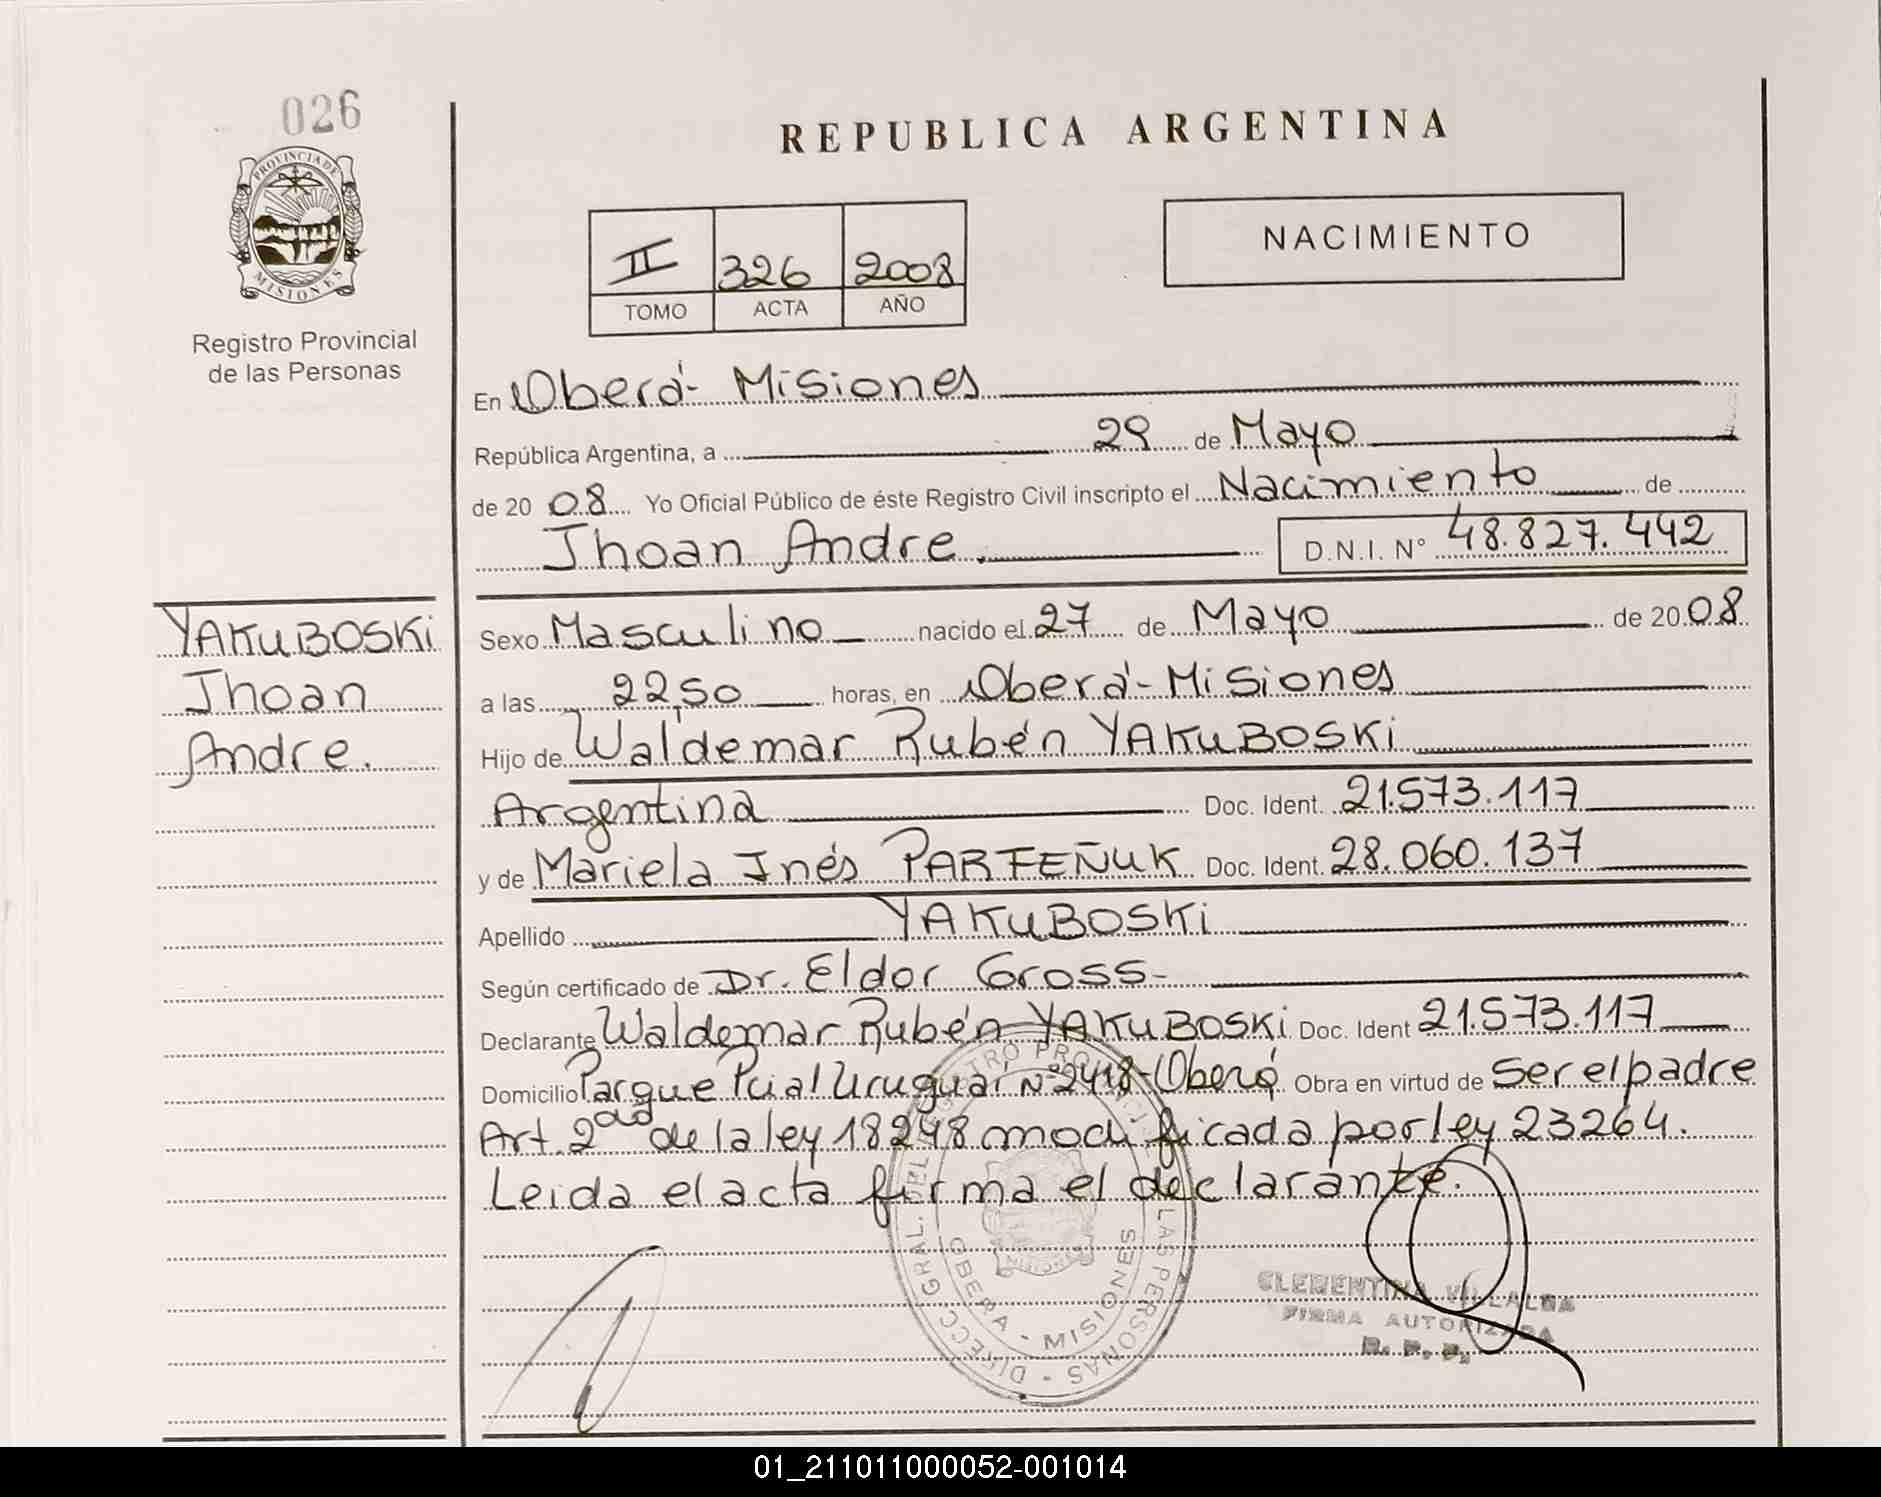 026
REPUBLICA ARGENTINA
PROVINCIA DE
MISIONES
Registro Provincial
de las Personas
II 326 2008
TOMO ACTA AÑO
NACIMIENTO
En Oberá- Misiones
República Argentina, a 29 de Mayo
de 20 08 Yo Oficial Público de éste Registro Civil inscripto el Nacimiento de
Jhoan Andre. D.N.I. N° 48.827.442
YAKUBOSKi
Jhoan
Andre.
Sexo Masculino nacido el 27 de Mayo de 20 08
a las 22,50 horas, en Oberá- Misiones
Hijo de Waldemar Rubén YAKUBOSKi
Argentina Doc. Ident. 21.573.117
y de Mariela Inés PARFEÑUK Doc. Ident. 28.060.137
Apellido YAKUBOSKi
Según certificado de Dr. Eldor Gross-
Declarante Waldemar Rubén YAKUBOSKi Doc. Ident 21.573.117
Domicilio Parque Pcial Uruguaí N°2418-Oberá Obra en virtud de ser el padre
Art. 2do de la ley 18248 modificada por ley 23264.
Leida el acta firma el declarante.
DIRECC. GRAL. DEL REGISTRO PROVINCIAL DE LAS PERSONAS
OBERA - MISIONES
CLEMENTINA VILLALBA
FIRMA AUTORIZADA
R. P. P.
01_211011000052-001014